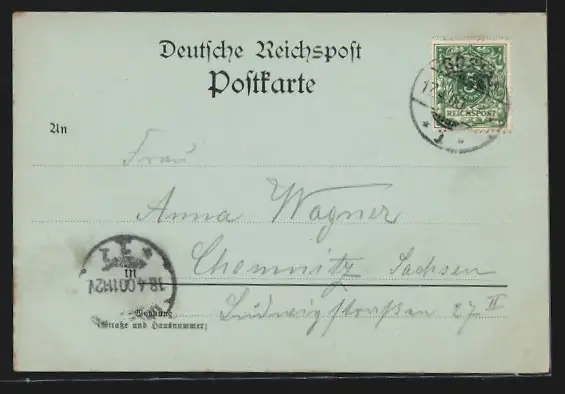 Deutsche Reichspost
Postkarte
5
REICHSPOST
17
1
An
Frau
Anna Wagner
in Chemnitz Sachsen
18.4.00
Wohnung
(Straße und Hausnummer)
Ludwigstraßen 27 II